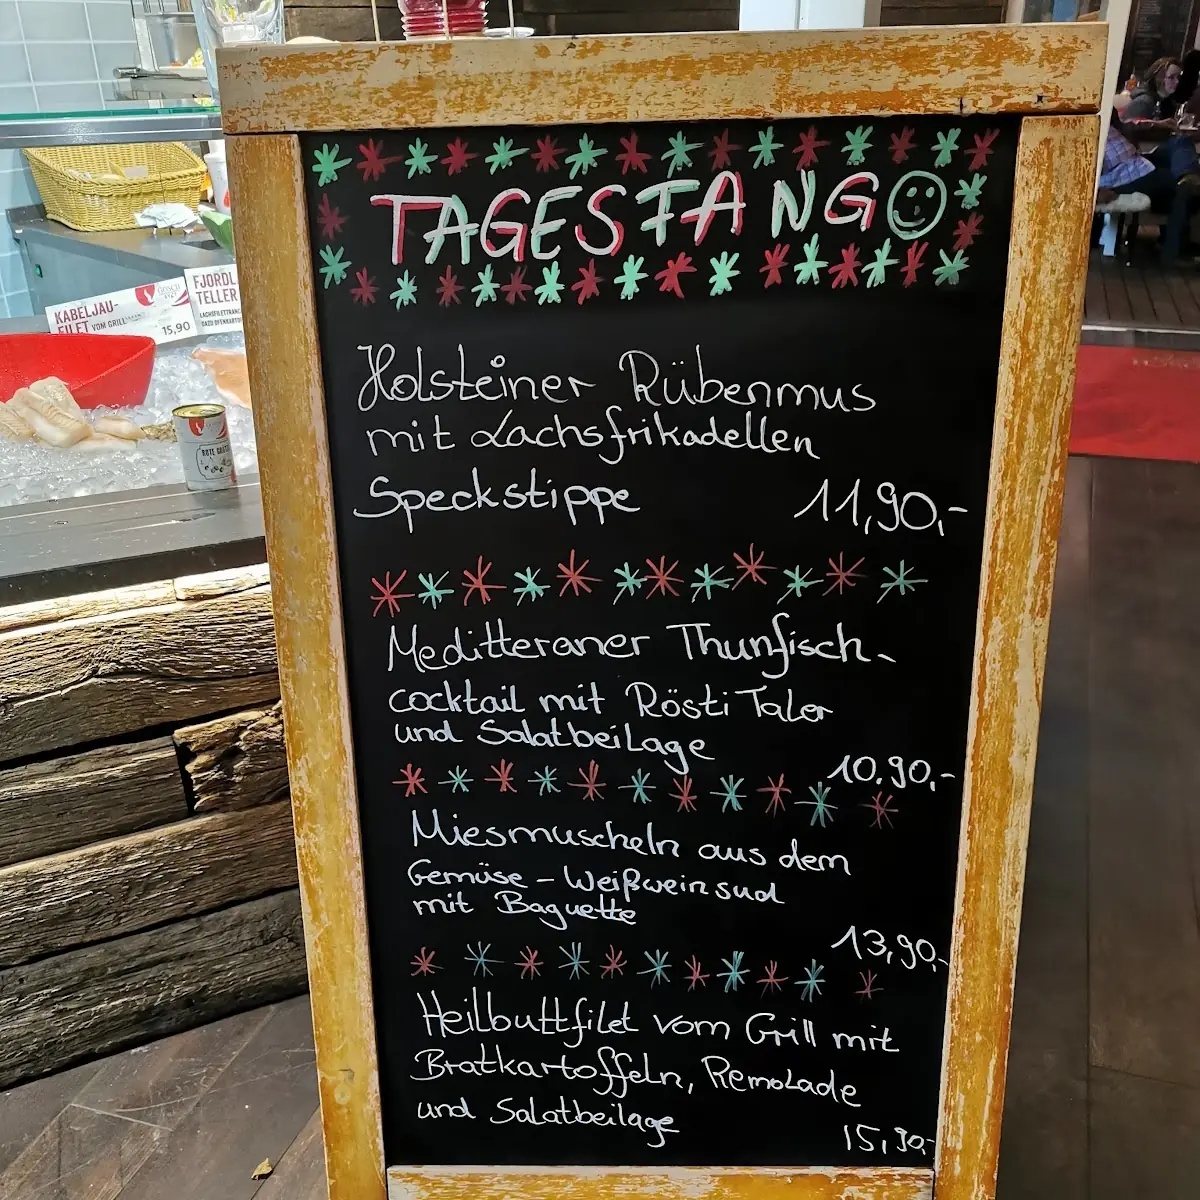 TAGESFANG
Holsteiner Rübenmus
mit Lachsfrikadellen
Speckstippe 11,90,-
Meditteraner Thunfisch-
cocktail mit Rösti Taler
und Salatbeilage
10,90,-
Miesmuscheln aus dem
Gemüse - Weißweinsud
mit Baguette
13,90,-
Heilbuttfilet vom Grill mit
Bratkartoffeln, Remolade
und Salatbeilage
15,90,-
KABELJAU-
FILET VOM GRILL
15,90
FJORDL
TELLER
LACHSFILETTRANC
DAZU OFENKARTOF